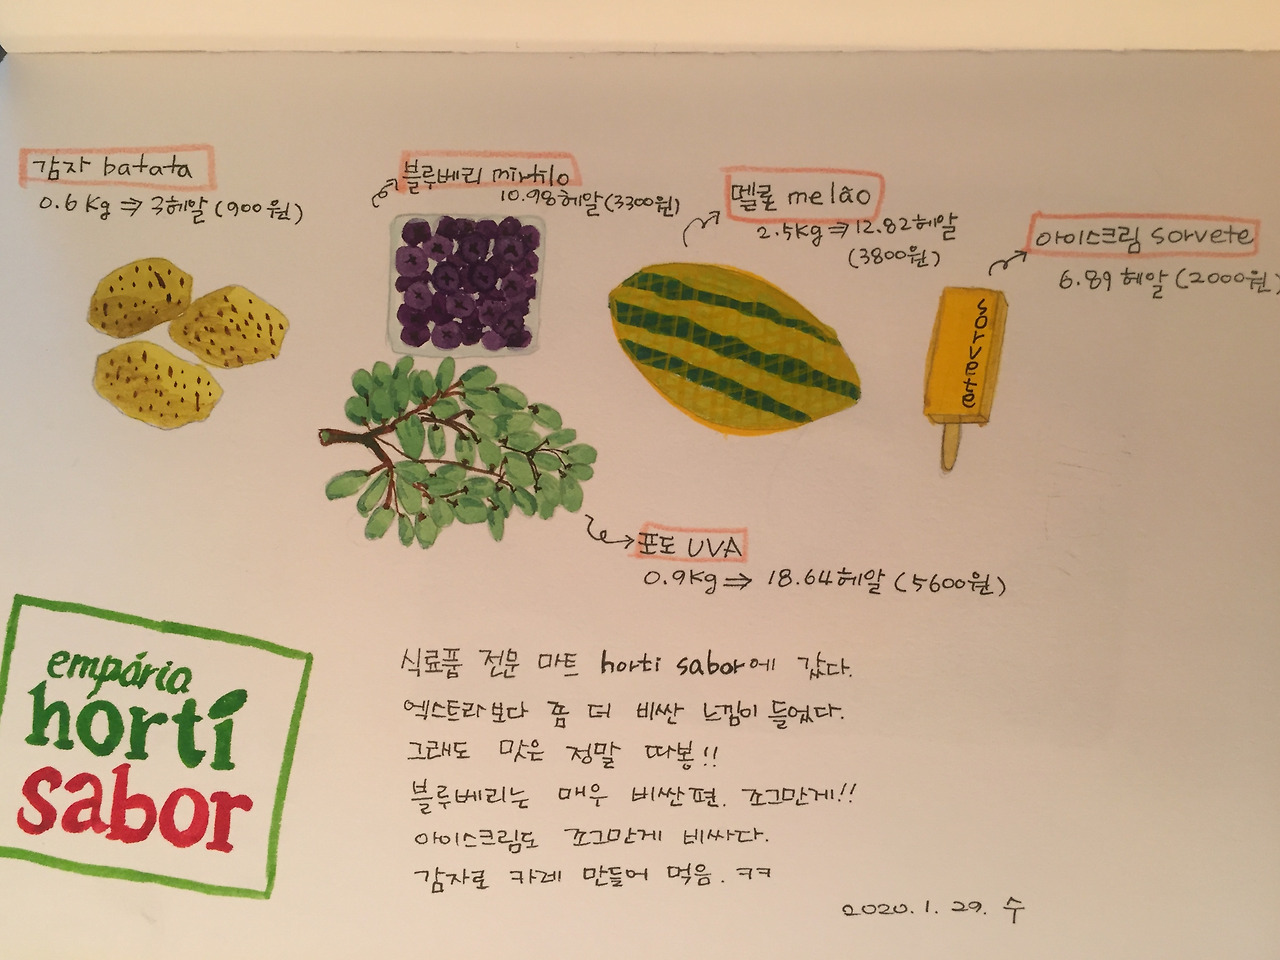 감자 batata
0.6kg ⇒ 3헤알 (900원)
블루베리 mirtilo
10.98헤알(3300원)
멜론 melão
2.5kg ⇒ 12.82헤알
(3800원)
아이스크림 sorvete
6.89헤알 (2000원)
sorvete
포도 UVA
0.9kg ⇒ 18.64헤알 (5600원)
empária
horti
sabor
식료품 전문 마트 horti sabor에 갔다.
엑스트라보다 좀 더 비싼 느낌이 들었다.
그래도 맛은 정말 따봉!!
블루베리는 매우 비싼편. 쪼그만게!!
아이스크림도 쪼그만게 비싸다.
감자로 카레 만들어 먹음. ㅋㅋ
2020. 1. 29. 수